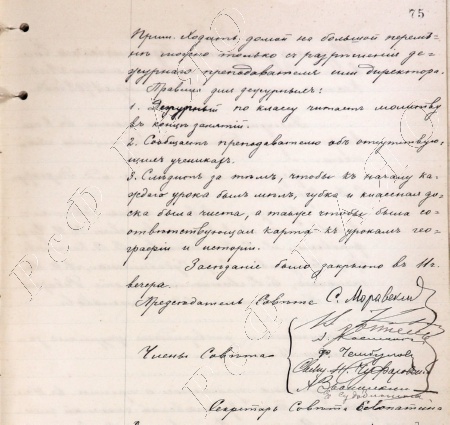 75
Прим. Ходить домой на большой перемѣ-
нѣ можно только съ разрѣшенія де-
журнаго преподавателя или директора.
Правила для дежурныхъ:
1. Дежурный по классу читаетъ молитву
въ концѣ занятій.
2. Сообщаетъ преподавателю объ отсутствую-
щихъ ученикахъ.
3. Слѣдитъ за тѣмъ, чтобы къ началу ка-
ждаго урока былъ мѣлъ, губка и классная до-
ска была чиста, а также чтобы была со-
отвѣтствующая карта къ урокамъ гео-
графіи и исторіи.
Засѣданіе было закрыто въ 11 ч.
вечера.
Предсѣдатель Совѣта С. Моравскій
Члены Совѣта
Секретарь Совѣта